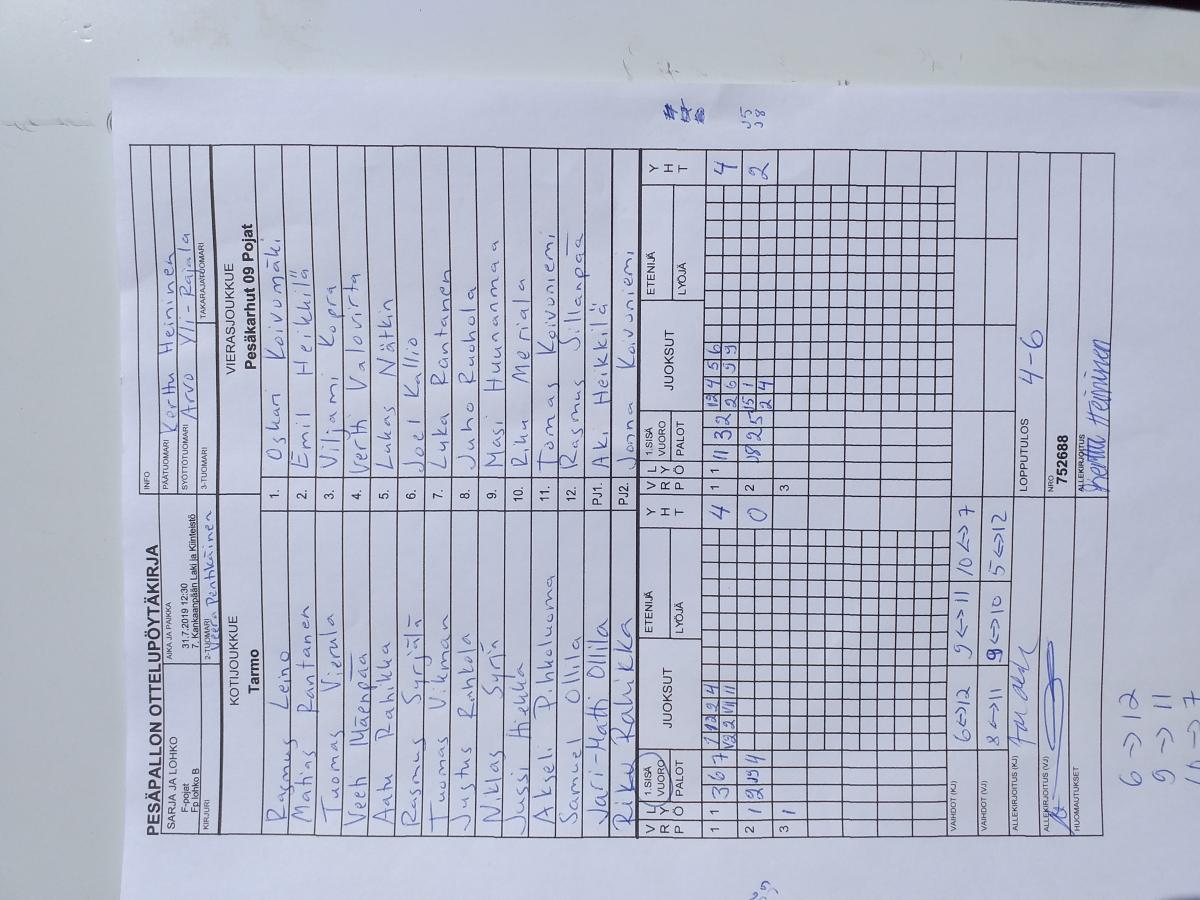 PESÄPALLON OTTELUPÖYTÄKIRJA
SARJA JA LOHKO
F-pojat
Fp lohko B
AIKA JA PAIKKA
31.7.2019 12:30
7, Kankaanpään Laki ja Kiinteistö
INFO
PÄÄTUOMARI Kerttu Heininen
SYÖTTÖTUOMARI Arvo Yli-Rajala
KIRJURI
2-TUOMARI Veera Pentikäinen
3-TUOMARI
TAKARAJATUOMARI
KOTIJOUKKUE
Tarmo
VIERASJOUKKUE
Pesäkarhut 09 Pojat
Rasmus Leino 1. Oskari Koivumäki
Matias Rantanen 2. Emil Heikkilä
Tuomas Vierula 3. Viljami Kopra
Veeti Mäenpää 4. Vertti Valovirta
Aatu Rahikka 5. Lukas Nätkin
Rasmus Syrjälä 6. Joel Kallio
Tuomas Vikman 7. Luka Rantanen
Justus Rahkola 8. Juho Ruohola
Niklas Syrjä 9. Masi Huunanmaa
Jussi Hiekka 10. Riku Meriala
Akseli Pihkoluoma 11. Tomas Koivuniemi
Samuel Ollila 12. Rasmus Sillanpää
Jari-Matti Ollila PJ1. Aki Heikkilä
Riku Rahikka PJ2. Jonna Koivuniemi
V R P L Y Ö 1.SISÄ VUORO PALOT JUOKSUT ETENIJÄ LYÖJÄ Y H T V R P L Y Ö 1.SISÄ VUORO PALOT JUOKSUT ETENIJÄ LYÖJÄ Y H T
1 1 3 6 7 4 1 1 11 3 2 12 4 5 6 4
2 6 9 9
2 1 0 2 2
2 4
3 1 3
VAIHDOT (KJ) 6<->12 9<->11 10<->7
VAIHDOT (VJ) 8<->11 9<->10 5<->12
ALLEKIRJOITUS (KJ)
LOPPUTULOS 4-6
ALLEKIRJOITUS (VJ)
NRO
752688
HUOMAUTUKSET
ALLEKIRJOITUS
Kerttu Heininen
6 -> 12
9 -> 11
10 -> 7